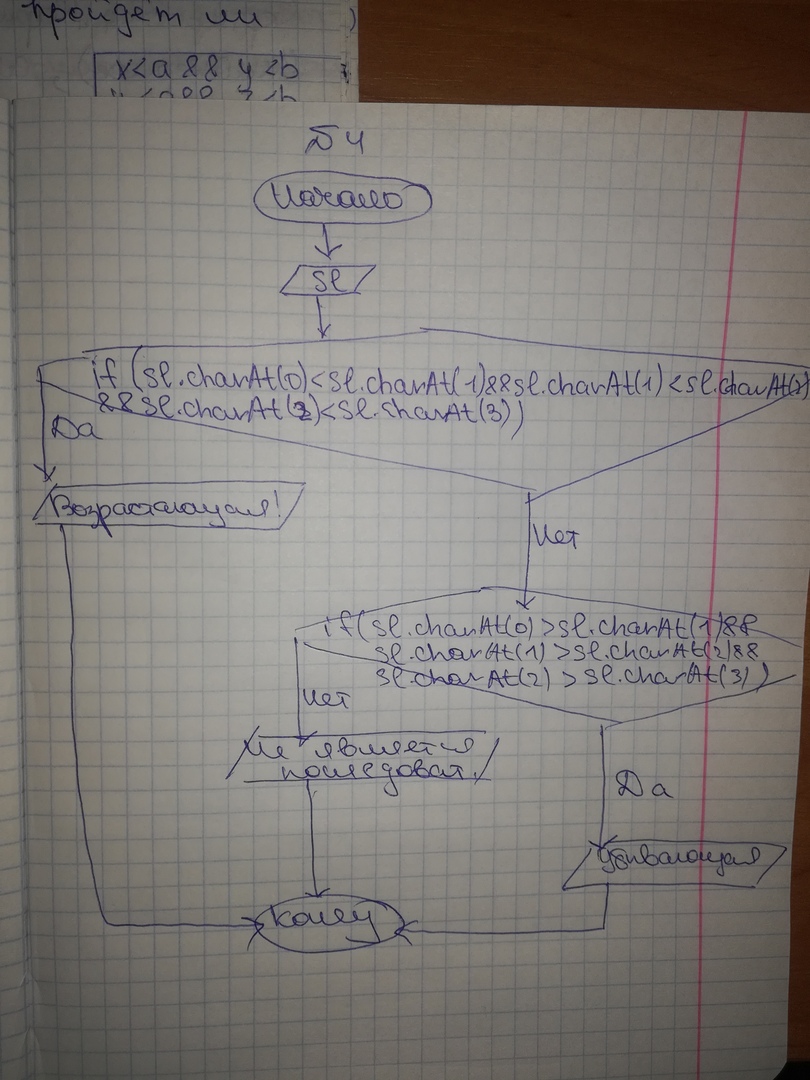 пройдёт ли )
x<a && y<b
№4
Начало
sl
if (sl.charAt(0)<sl.charAt(1)&&sl.charAt(1)<sl.charAt(2)
&&sl.charAt(2)<sl.charAt(3))
Да
Возрастающая!
Нет
if(sl.charAt(0)>sl.charAt(1)&&
sl.charAt(1)>sl.charAt(2)&&
sl.charAt(2)>sl.charAt(3))
Нет
Не является
последоват.
Да
Убивающая
Конец